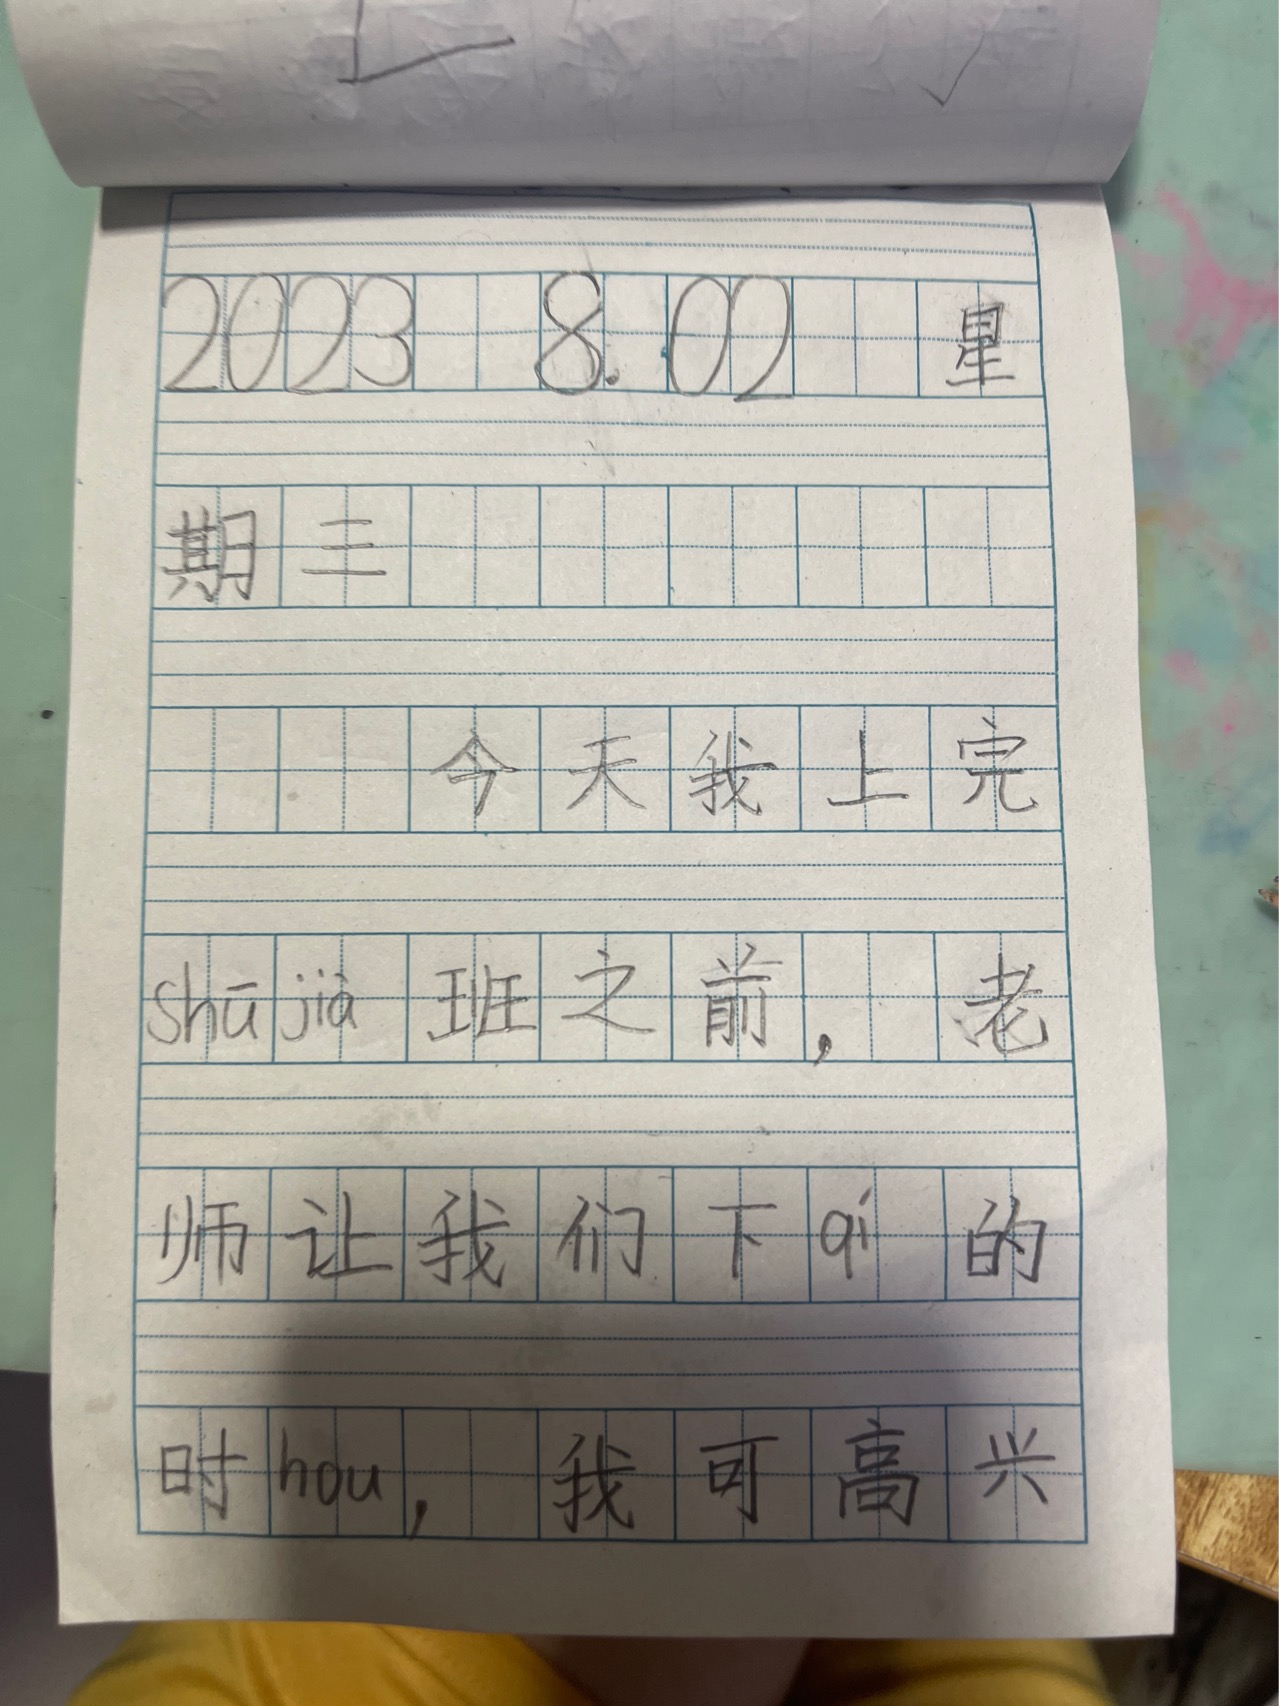 2023 8.02 星
期三
今天我上完
shū jià 班之前，老
师让我们下qí的
时hou，我可高兴